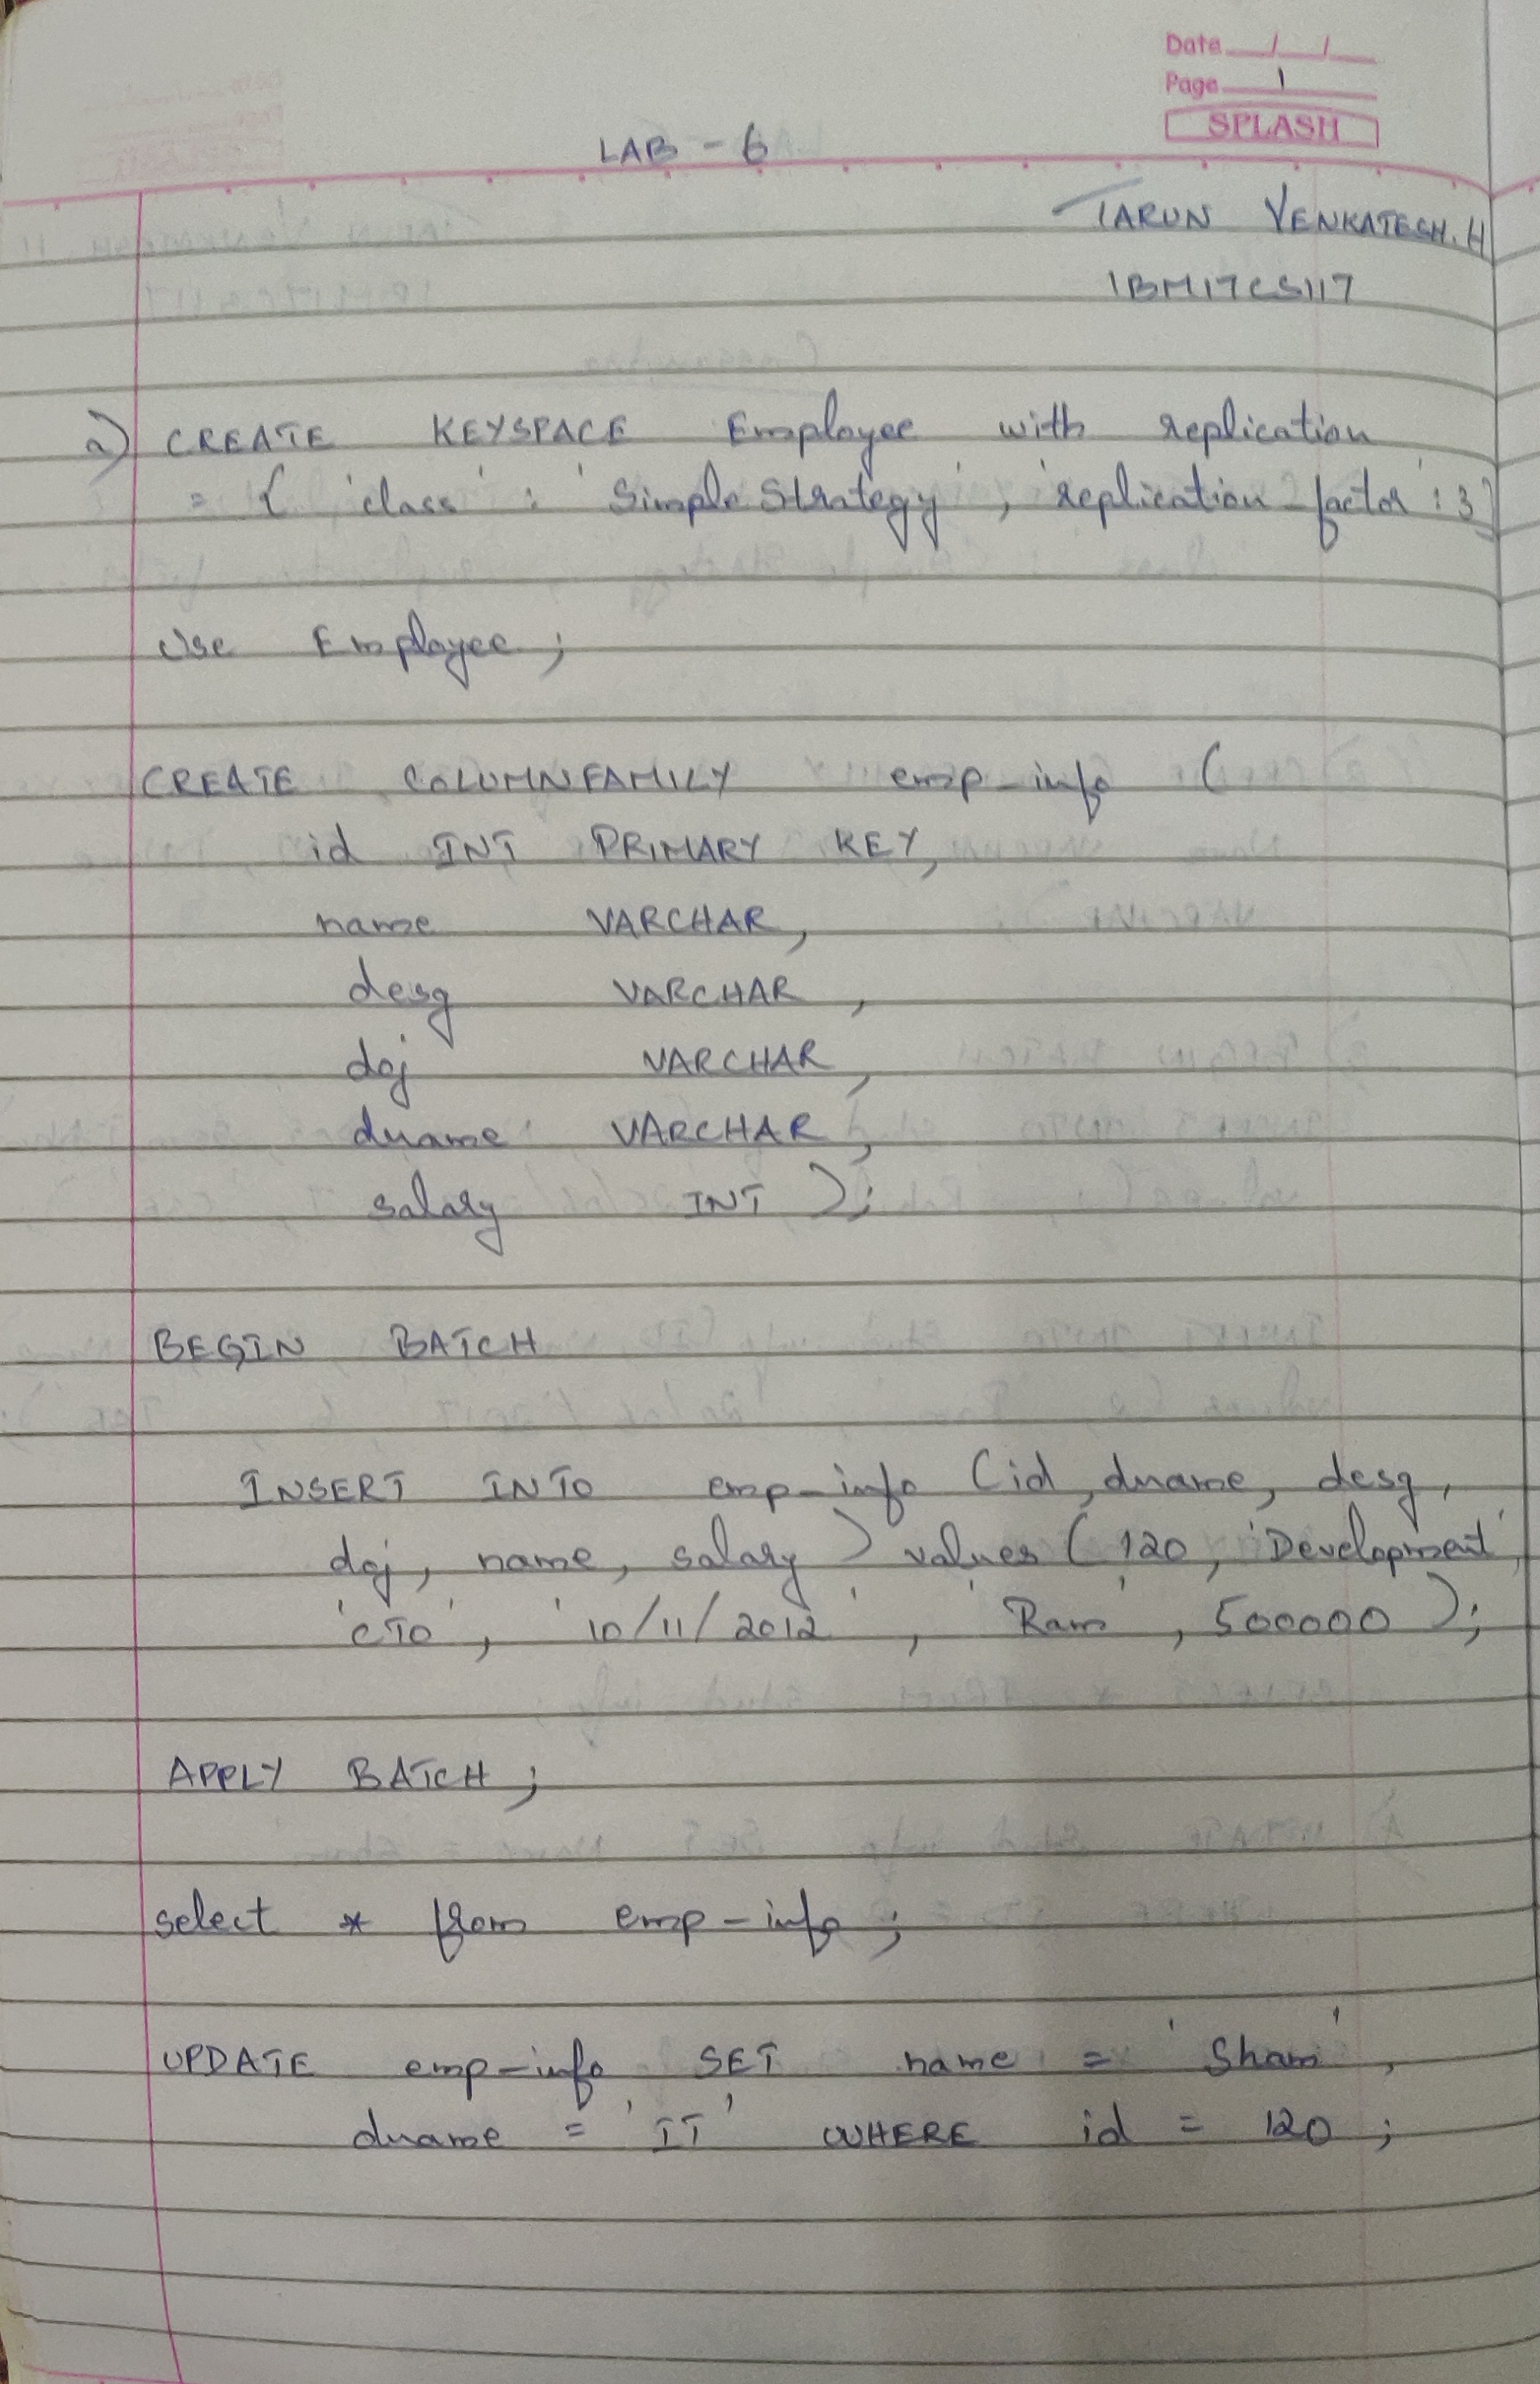 Date / /
Page 1
SPLASH
LAB - 6
TARUN VENKATESH. H
1BM17CS117
a) CREATE KEYSPACE Employee with replication
= { 'class' : 'Simple Strategy' , 'replication_factor' : 3}
Use Employee ;
CREATE COLUMNFAMILY emp_info (
id INT PRIMARY KEY,
name VARCHAR,
desg VARCHAR ,
doj VARCHAR ,
dname VARCHAR ,
salary INT );
BEGIN BATCH
INSERT INTO emp_info (id, dname, desg,
doj, name, salary ) values ( 120, 'Development',
'CTO', '10/11/2012' , 'Ram' , 500000 );
APPLY BATCH ;
select * from emp_info ;
UPDATE emp_info SET name = 'Sham' ,
dname = 'IT' WHERE id = 120 ;